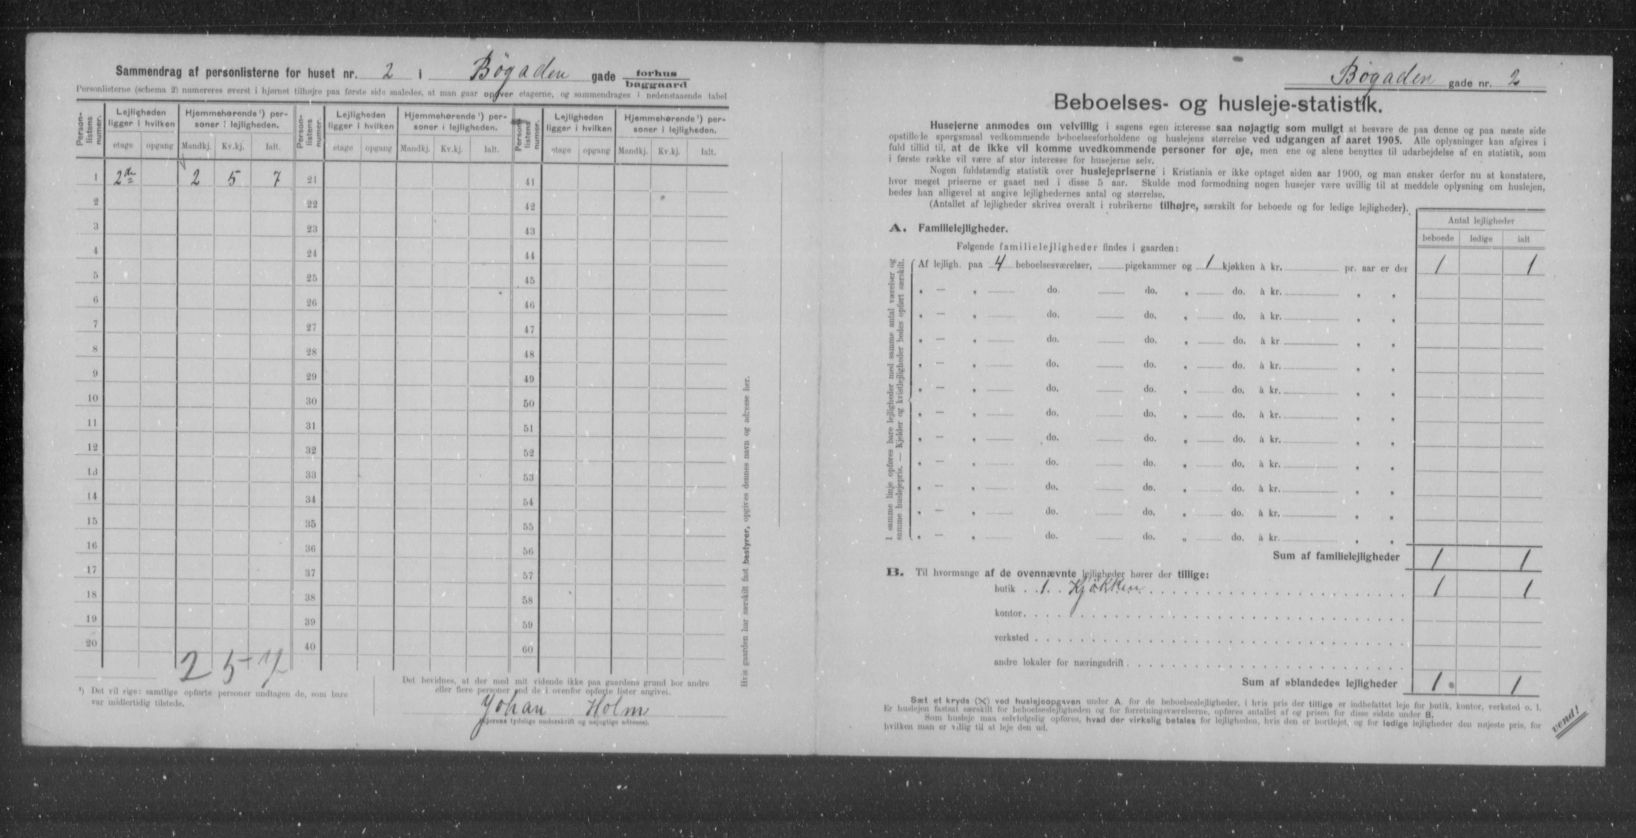 Sammendrag af personlisterne for huset nr. 2 i Bøgaden gade forhus baggaard
Personlisterne (schema 2) numereres øverst i hjørnet tilhøjre paa første side saaledes, at man gaar opover etagerne, og sammendrages i nedenstaaende tabel
Personlistens numer. Lejligheden ligger i hvilken Hjemmehørende ¹) personer i lejligheden. Personlistens numer. Lejligheden ligger i hvilken Hjemmehørende ¹) personer i lejligheden. Personlistens numer. Lejligheden ligger i hvilken Hjemmehørende ¹) personer i lejligheden.
etage opgang Mandkj. Kv.kj. Ialt. etage opgang Mandkj. Kv.kj. Ialt. etage opgang Mandkj. Kv.kj. Ialt.
1 2den 2 5 7 21 41
2 22 42
3 23 43
4 24 44
5 25 45
6 26 46
7 27 47
8 28 48
9 29 49
10 30 50
11 31 51
12 32 52
13 33 53
14 34 54
15 35 55
16 36 56
17 37 57
18 38 58
19 39 59
20 40 60
2 5 7
¹) Det vil sige: samtlige opførte personer undtagen de, som bare var midlertidig tilstede.
Det bevidnes, at der med mit vidende ikke paa gaardens grund bor andre
eller flere personer end de i ovenfor opførte lister angivel.
Johan Holm
(Ejerens tydelige underskrift og nøjagtige adresse).
Hvis gaarden har særskilt fast bestyrer, opgives dennes navn og adresse her.
Bøgaden gade nr. 2
Beboelses- og husleje-statistik.
Husejerne anmodes om velvillig i sagens egen interesse saa nøjagtig som muligt at besvare de paa denne og paa næste side
opstillede spørgsmaal vedkommende beboelsesforholdene og huslejens størrelse ved udgangen af aaret 1905. Alle oplysninger kan afgives i
fuld tillid til, at de ikke vil komme uvedkommende personer for øje, men ene og alene benyttes til udarbejdelse af en statistik, som
i første række vil være af stor interesse for husejerne selv.
Nogen fuldstændig statistik over huslejepriserne i Kristiania er ikke optaget siden aar 1900, og man ønsker derfor nu at konstatere,
hvor meget priserne er gaaet ned i disse 5 aar. Skulde mod formodning nogen husejer være uvillig til at meddele oplysning om huslejen,
bedes han alligevel at angive lejlighedernes antal og størrelse.
(Antallet af lejligheder skrives overalt i rubrikerne tilhøjre, særskilt for beboede og for ledige lejligheder).
Antal lejligheder
beboede ledige ialt
A. Familielejligheder.
Følgende familielejligheder findes i gaarden:
I samme linje opføres bare lejligheder med samme antal værelser og
samme huslejepris. — Kjelder og kvistlejligheder bedes opført særskilt.
Af lejligh. paa 4 beboelsesværelser, pigekammer og 1 kjøkken à kr. pr. aar er der 1 1
„ — „ do. do. „ do. à kr. „ „
„ — „ do. do. „ do. à kr. „ „
„ — „ do. do. „ do. à kr. „ „
„ — „ do. do. „ do. à kr. „ „
„ — „ do. do. „ do. à kr. „ „
„ — „ do. do. „ do. à kr. „ „
„ — „ do. do. „ do. à kr. „ „
„ — „ do. do. „ do. à kr. „ „
„ — „ do. do. „ do. à kr. „ „
„ — „ do. do. „ do. à kr. „ „
„ — „ do. do. „ do. à kr. „ „
Sum af familielejligheder 1 1
B. Til hvormange af de ovennævnte lejligheder hører der tillige:
butik 1 Kjøkken 1 1
kontor
verksted
andre lokaler for næringsdrift
Sum af »blandede« lejligheder 1 1
Sæt et kryds (X) ved huslejeopgaven under A. for de beboelseslejligheder, i hvis pris der tillige er indbefattet leje for butik, kontor, verksted o. l.
Er huslejen fastsat særskilt for beboelseslejligheden og for forretningsværelserne, opføres antallet af og prisen for disse sidste under B.
Som husleje maa selvfølgelig opføres, hvad der virkelig betales for lejligheden, hvis den er bortlejet, og for ledige lejligheder den nøjeste pris, for
hvilken man er villig til at leje den ud.
vend!